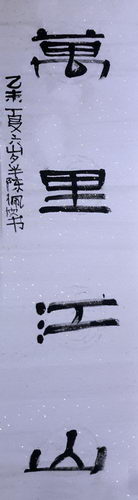 萬里江山
乙未夏六岁半陈佩忱书